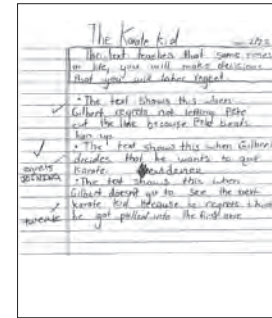 The Karate Kid
The text teaches that some times
in life, you will make decisions
that you will later regret.
• The text shows this when
Gilbert regrets not letting Pete
cut the line because Pete beats
him up.
• The text shows this when Gilbert
decides that he wants to quit
Karate.
• The text shows this when
Gilbert doesn't go to see the next
karate kid because he regrets
he got pulled into the first one